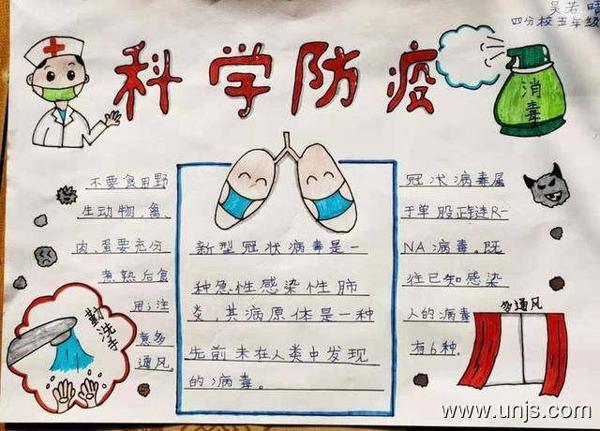 吴若
四分校五年级
科学防疫
消毒
不要食用野
生动物,禽、
肉、蛋要充分
煮熟后食
用;注
意多
通风。
新型冠状病毒是一
种急性感染性肺
炎,其病原体是一种
先前未在人类中发现
的病毒。
冠状病毒属
于单股正链R-
NA病毒。既
往已知感染
人的病毒
有6种.
勤洗手
多通风
www.unjs.com